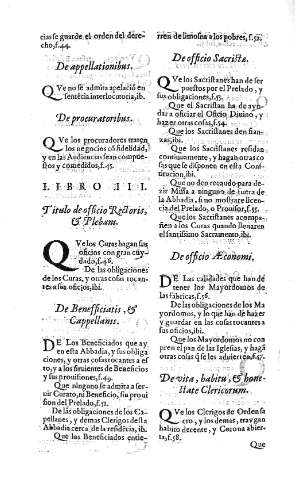 cias se guarde el orden del dere-
cho, f.44.
De appellationibus.
QVe no se admita apelació en
sentécia interlocutoria, ib.
De procuratoribus.
QVe los procuradores traten
los negocios có fidelidad,
y en las Audiencias sean compues-
tos y comedidos, f.45.
LIBRO III.
Titulo de officio Rectoris,
& Plebani.
QVe los Curas hagan sus
oficios con gran cuy-
dado, f.46.
De las obligaciones
de los Curas, y otras cosas tocan-
tes a sus oficios, ibi.
De Beneficiatis, &
Cappellanis.
DE Los Beneficiados que ay
en esta Abbadia, y sus obliga
ciones, y otras cosas tocantes a es-
to, y a los siruientes de Beneficios
y sus prouisiones, f.49.
Que ninguno se admita a ser-
uir Curato, ni Beneficio, sin proui
sion del Prelado, f.51.
De las obligaciones de los Ca-
pellanes, y demas Clerigos desta
Abbadia cerca de la residécia, ibi.
Que los Beneficiados entie-
rren de limosna a los pobres, f.52.
De officio Sacristæ.
QVe los Sacristanes han de ser
puestos por el Prelado, y
sus obligaciones, f.53.
Que el Sacristan ha de ayu-
dar a oficiar el Oficio Diuino, y
hazer otras cosas, f.54.
Que los Sacristanes den fian-
zas, ibi.
Que los Sacristanes residan
continuamente, y hagan otras co
sas que se disponen en esta Cons-
titucion, ibi.
Que no den recaudo para de-
zir Missa a ninguno de fuera de
la Abbadia, si no mostrare licen-
cia del Prelado, o Prouisor, f.55.
Que los Sacristanes acompa-
ñen a los Curas quando lleuaren
el santissimo Sacramento, ibi.
De officio Æconomi.
DE Las calidades que han de
tener los Mayordomos de
las fabricas, f.56.
De las obligaciones de los Ma
yordomos, y lo que han de hazer
y guardar en las cosas tocantes a
sus oficios, ibi.
Que los Mayordomos no com
pren el pan de las Iglesias, y hagá
otras cosas q̃ se les aduierten, f.57.
De vita, habitu, & hone-
state Clericorum.
QVe los Clerigos de Orden sa
cro, y los demas, traygan
habito decente, y Corona abier-
ta, f.58.
Que